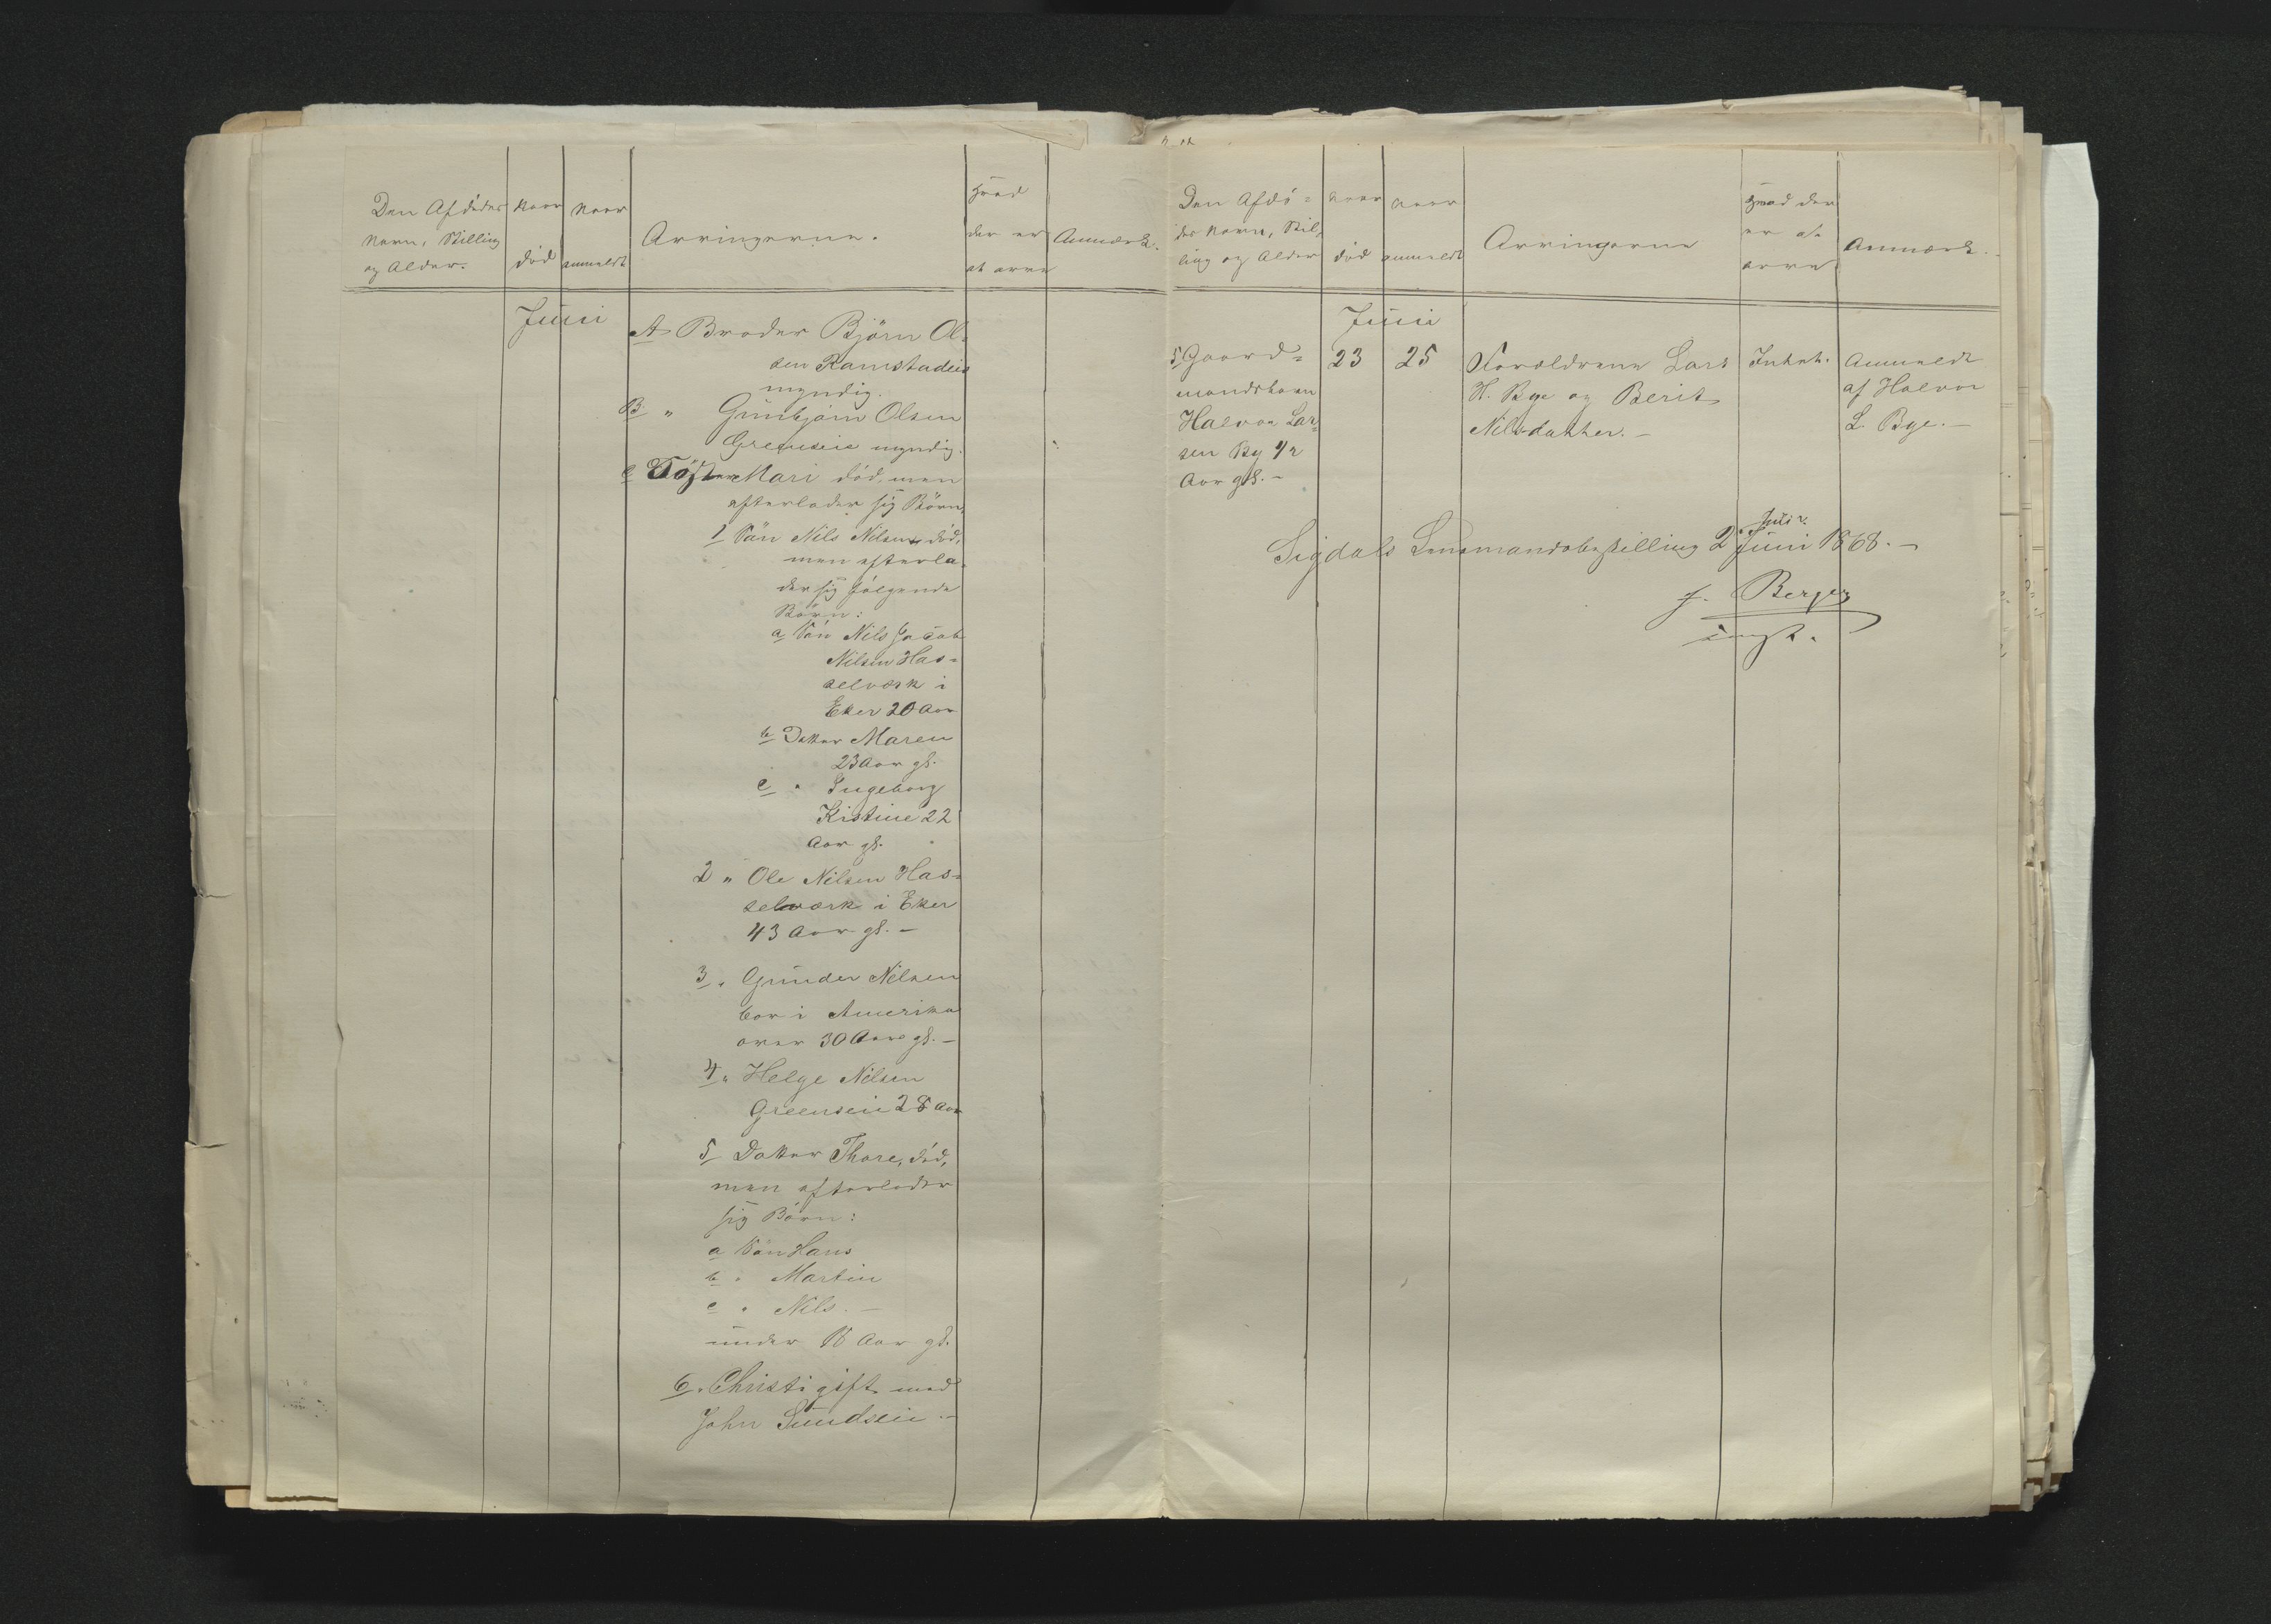 Den Afdødes
Navn, Stilling
og Alder.
Naar
død
Naar
anmeldt
Arvingerne.
Hvad
der er
at arve
Anmærk.
Juni
A Broder Björn Ol-
sen Ramstadeie
myndig.
B " Gunbjørn Olsen
Greenseie myndig.
C Söster Mari död, men
efterlader sig Børn,
1 Søn Nils Nilsen død,
men efterla-
der sig følgende
Børn:
a Søn Nils Jacob
Nilsen Has-
selværk i
Eker 20 Aar
b Datter Maren
23 Aar gl.
c " Ingeborg
Kistine 22
Aar gl.
2 " Ole Nilsen Has-
selværk i Eker
43 Aar gl. -
3 " Gunder Nilsen
bor i Amerika
over 30 Aar gl. -
4 " Helge Nilsen
Greenseie 28 Aar
5 Datter Thore, død,
men efterlader
sig Børn:
a Søn Hans
b " Martin
c " Nils. -
under 18 Aar gl.
6 " Christi gift med
John Sundseie. -
Den Afdø-
des Navn, Stil-
ling og Alder
naar
død
naar
anmeldt
Arvingerne
Hvad der
er at
arve
Anmærk.
Juni
5 Gaard-
mandsbarn
Halvor Lar-
sen By 1/2
Aar gl. -
23
25
Forældrene Lars
H. Bye og Berit
Nilsdatter. -
Intet.
Anmeldt
af Halvor
L. Bye. -
Juli
Sigdals Lensmandsbestilling 2 Juni 1868. -
Berger